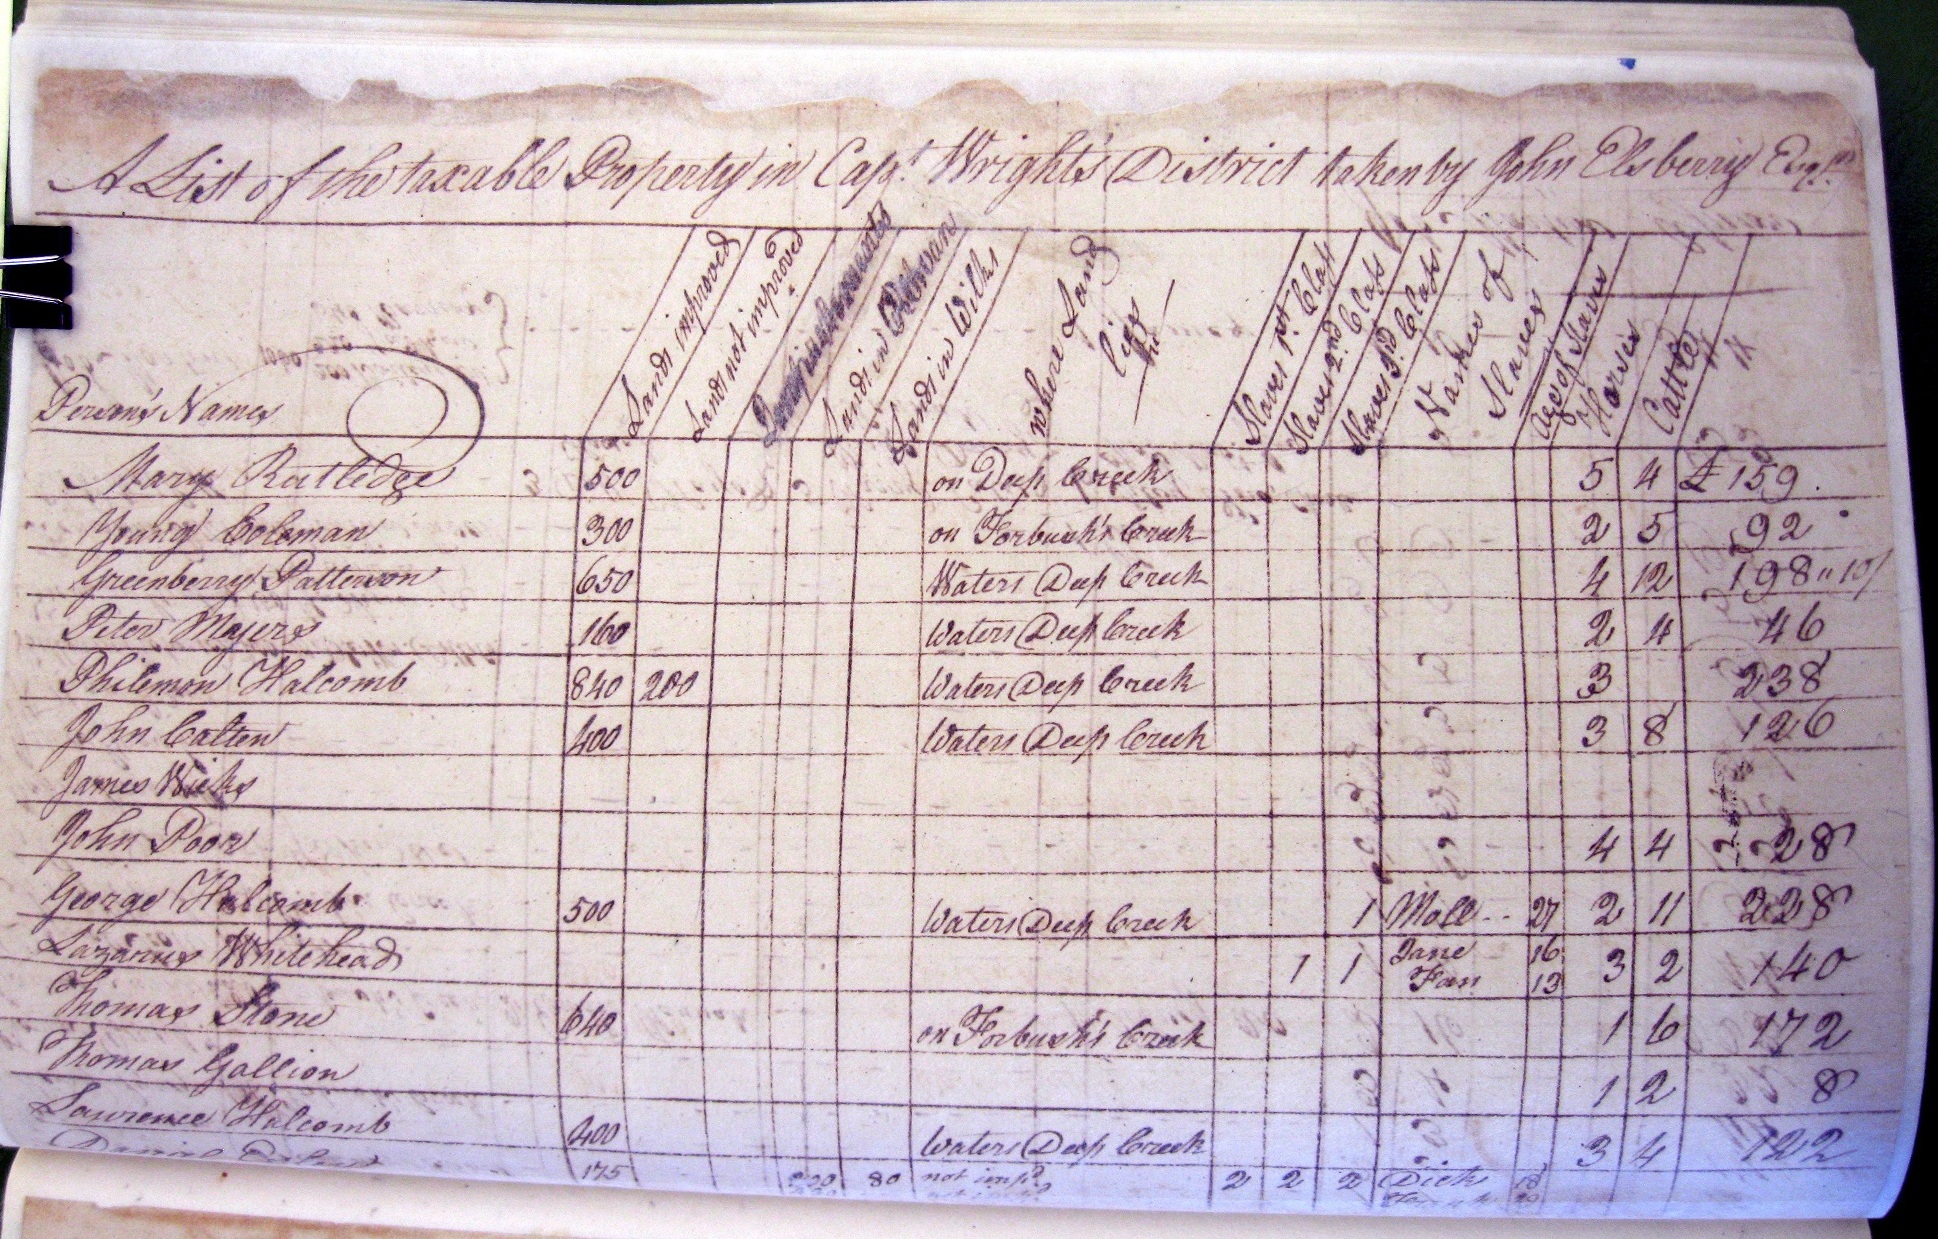 A List of the taxable Property in Capt. Wright's District taken by John Elsberry Esqr.
Person's Names Lands improved Lands not improved Lands in Wilks where Land lies Slaves 1st. Class Slaves 2nd. Class Slaves 3rd. Class Names of Slaves Ages of Slaves Horses Cattle
Mary Rutledge 500 on Deep Creek 5 4 £ 159.
Young Coleman 300 on Forbush's Creek 2 5 92
Greenberry Patterson 650 Waters Deep Creek 4 12 198 " 10/
Peter Myers 160 Waters Deep Creek 2 4 46
Philemon Halcomb 840 200 Waters Deep Creek 3 238
John Calten 400 Waters Deep Creek 3 8 126
James Wicks
John Poor 4 4 28
George Halcomb 500 Waters Deep Creek 1 Moll 27 2 11 228
Lazarus Whitehead 1 1 Jane 16 3 2 140
Fan 13
Thomas Stone 640 on Forbush's Creek 1 6 172
Thomas Gallion 1 2 8
Lawrence Halcomb 400 Waters Deep Creek 3 4 122
Daniel 175 80 not impd. 2 2 2 Dick 18